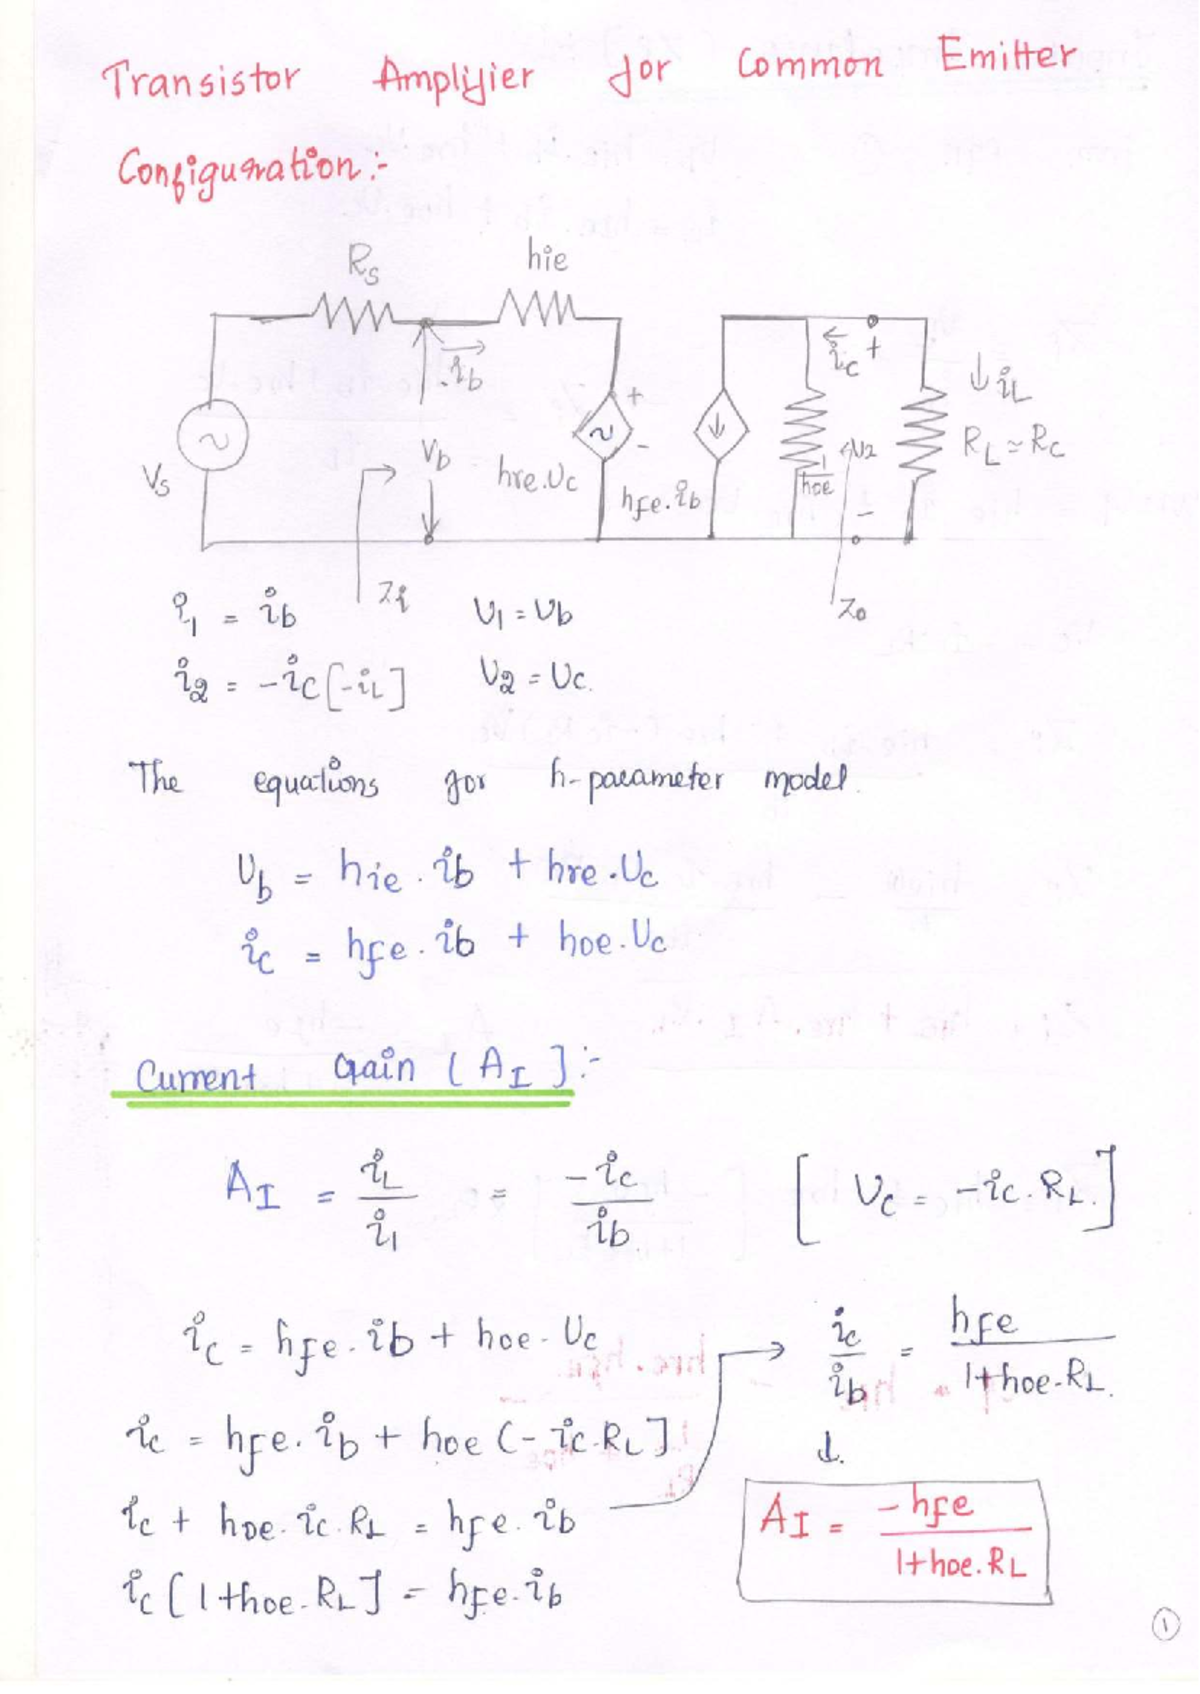 Transistor Amplifier for Common Emitter
Configuration:-
Rs
hie
ib
ic
+
iL
Vs
Vb
hre.Vc
+
-
hfe.ib
1/hoe
V2
-
RL≃RC
Zi
Zo
i1 = ib
V1 = Vb
i2 = -ic[-iL]
V2 = Vc.
The equations for h-parameter model.
Vb = hie . ib + hre . Vc
ic = hfe . ib + hoe . Vc
Current Gain [AI]:-
AI = iL/i1 = -ic/ib [Vc = -ic. RL.]
ic = hfe. ib + hoe - Vc
ic = hfe. ib + hoe (- ic.RL]
ic + hoe. ic. RL = hfe. ib
ic [1+hoe. RL] = hfe. ib
ic/ib = hfe/1+hoe-RL.
↓.
AI = -hfe/1+hoe.RL
1